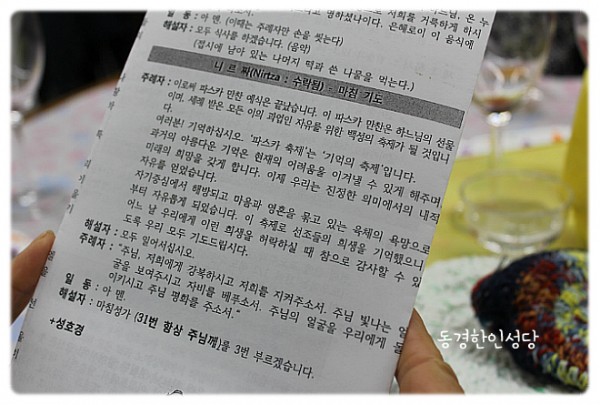 느님, 온 누
저희를 거룩하게 하시
명하셨나이다. 은혜로이 이 음식에
일 동 : 아 멘. (이때는 주례자만 손을 씻는다)
해설자 : 모두 식사를 하겠습니다. (음악)
(접시에 남아 있는 나머지 떡과 쓴 나물을 먹는다.)
니 르 짜(Nirtza : 수락됨) - 마침 기도
주례자 : 이로써 파스카 만찬 예식은 끝났습니다. 이 파스카 만찬은 하느님의 선물
이며, 세례 받은 모든 이의 과업인 자유를 위한 백성의 축제가 될 것입니
다.
여러분! 기억하십시오. '파스카 축제'는 '기억의 축제'입니다.
과거의 아름다운 기억은 현재의 어려움을 이겨낼 수 있게 해주며,
미래의 희망을 갖게 합니다. 이제 우리는 진정한 의미에서의 내적
자유를 얻었습니다.
자기중심에서 해방되고 마음과 영혼을 묶고 있는 육체의 욕망으로
부터 자유롭게 되었습니다. 이 축제로 선조들의 희생을 기억했으니
어느 날 우리에게 이런 희생을 허락하실 때 참으로 감사할 수 있
도록 우리 모두 기도드립시다.
해설자 : 모두 일어서십시오.
주례자 : "주님, 저희에게 강복하시고 저희를 지켜주소서. 주님 빛나는 얼
굴을 보여주시고 자비를 베푸소서. 주님의 얼굴을 우리에게 돌
이키시고 주님 평화를 주소서."
일 동 : 아 멘.
해설자 : 마침성가 (31번 항상 주님께)를 3번 부르겠습니다.
+성호경
동경한인성당